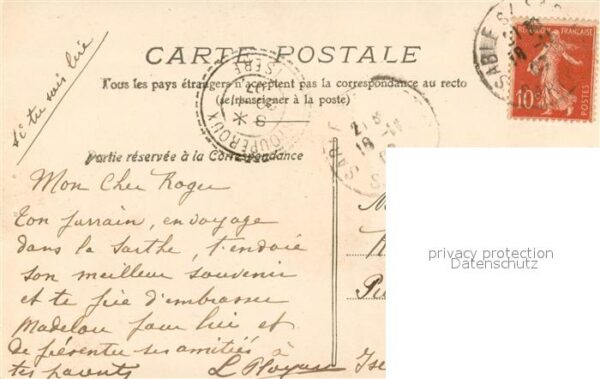 si tu sais lire
CARTE POSTALE
Tous les pays étrangers n'acceptent pas la correspondance au recto
(se renseigner à la poste)
Partie réservée à la Correspondance
SABLE S/
RÉPUBLIQUE FRANÇAISE
10
POSTES
ISERE
Mon Cher Roger
Ton parrain, en voyage
dans la Sarthe, t'envoie
son meilleur souvenir
et te prie d'embrasser
Madelou pour lui et
de présenter ses amitiés à
tes parents
privacy protection
Datenschutz
Ise